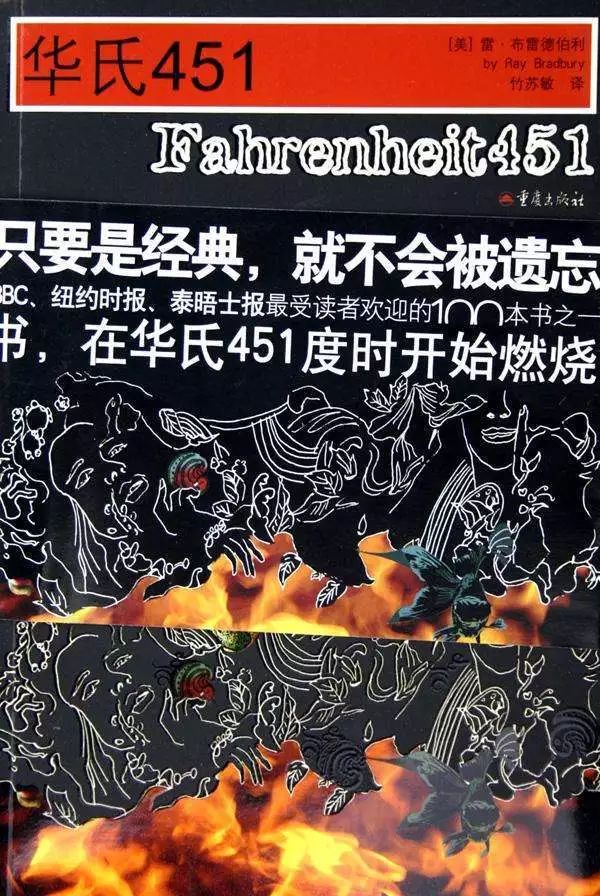 华氏451
[美] 雷·布雷德伯利
by Ray Bradbury
竹苏敏 译
Fahrenheit451
重庆出版社
只要是经典，就不会被遗忘
BBC、纽约时报、泰晤士报最受读者欢迎的100本书之一
书，在华氏451度时开始燃烧